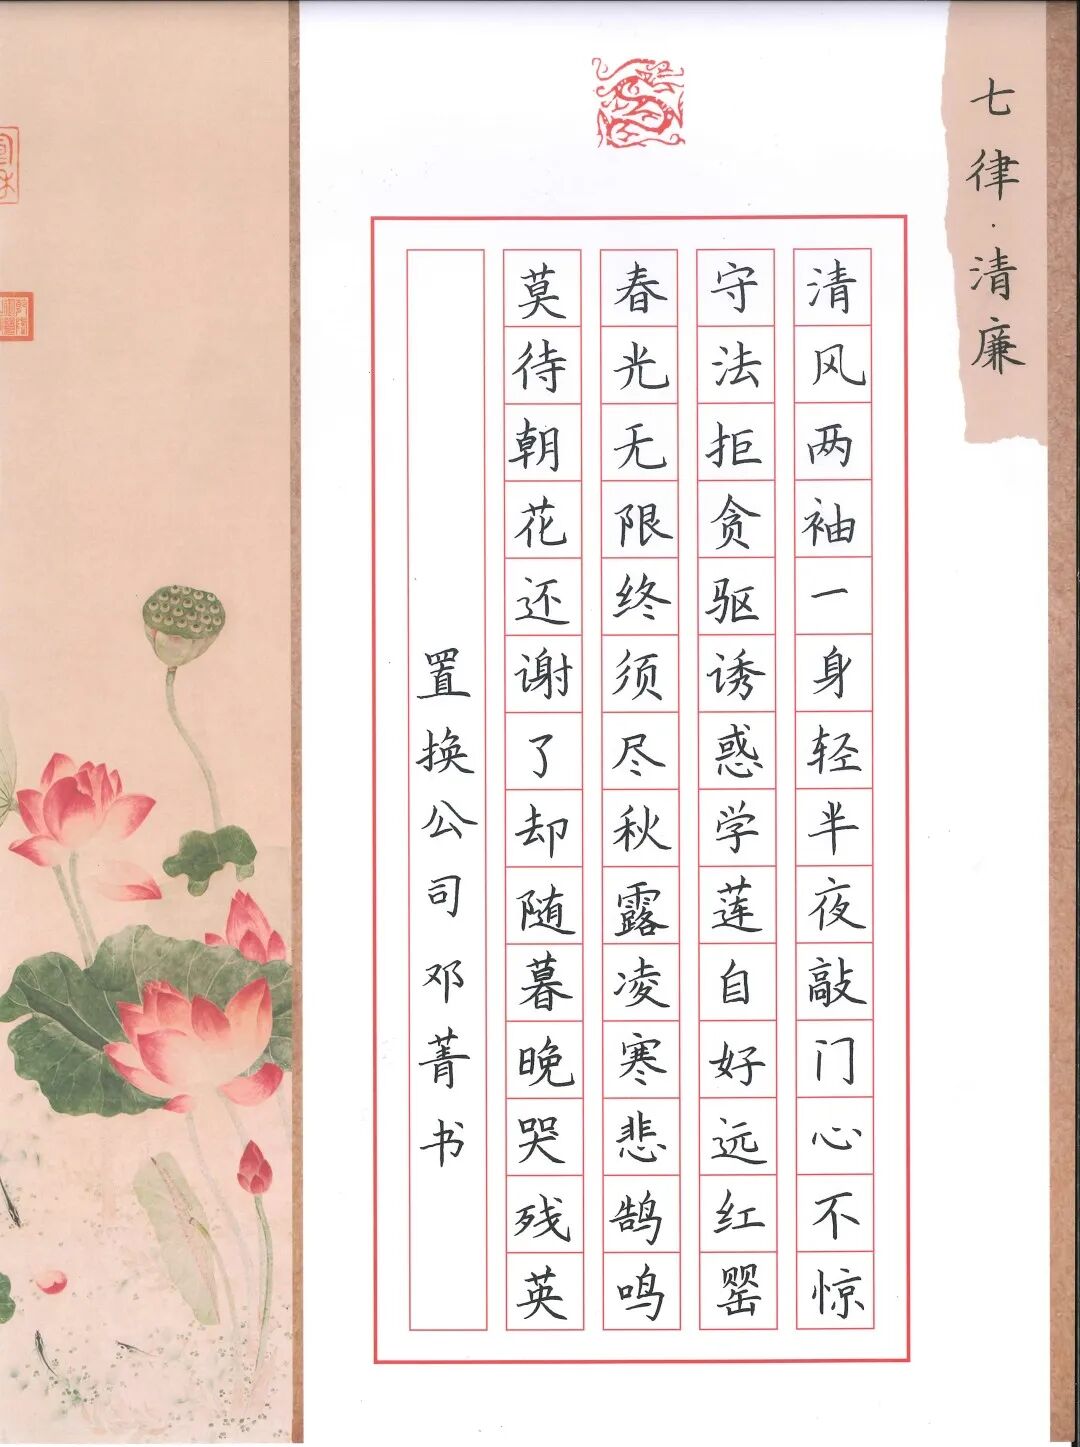 七律·清廉
清风两袖一身轻半夜敲门心不惊
守法拒贪驱诱惑学莲自好远红罂
春光无限终须尽秋露凌寒悲鹄鸣
莫待朝花还谢了却随暮晚哭残英
置换公司邓菁书